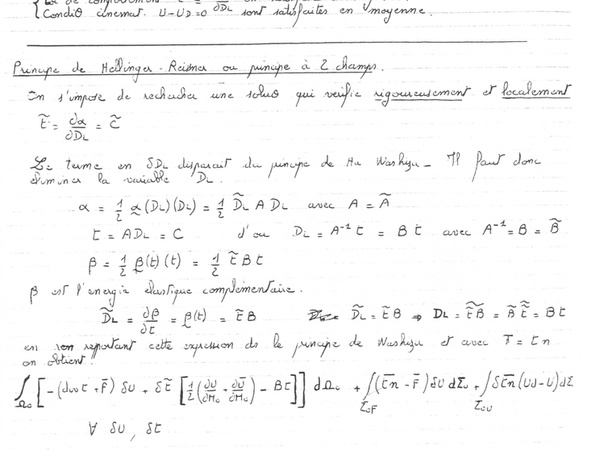 de comportement
Condiθ cinémat. U-UD=0 sont satisfaites en moyenne.
Principe de Hellinger-Reisner ou principe à 2 champs.
On s'impose de rechercher une soluθ qui vérifie rigoureusement et localement
t̃ = ∂α/∂DL = C̃
Le terme en δDL disparait du principe de Hu Washizu - Il faut donc
éliminer la variable DL.
α = 1/2 α̰(DL)(DL) = 1/2 D̃L A DL avec A = Ã
t = ADL = C d'où DL = A⁻¹ t = B t avec A⁻¹ = B = B̃
β = 1/2 β̰(t)(t) = 1/2 t̃ B t
β est l'énergie élastique complémentaire.
D̃L = ∂β/∂t = β(t) = t̃ B D̃L = t̃ B ⇒ DL = t̃B̃ = B̃ t̃̃ = Bt
en reportant cette expression ds le principe de Washizu et avec T = tn
on obtient.
∫Ω₀ [-(div t + F̄) δU + δt̃ [1/2(∂U/∂M₀ + ∂Ũ/∂M₀) - Bt]] dΩ₀ + ∫Σ₀F (t̄n - F̄) δU dΣ₀ + ∫Σ₀U δt̄n (Ud-U) dΣ
∀ δU, δt